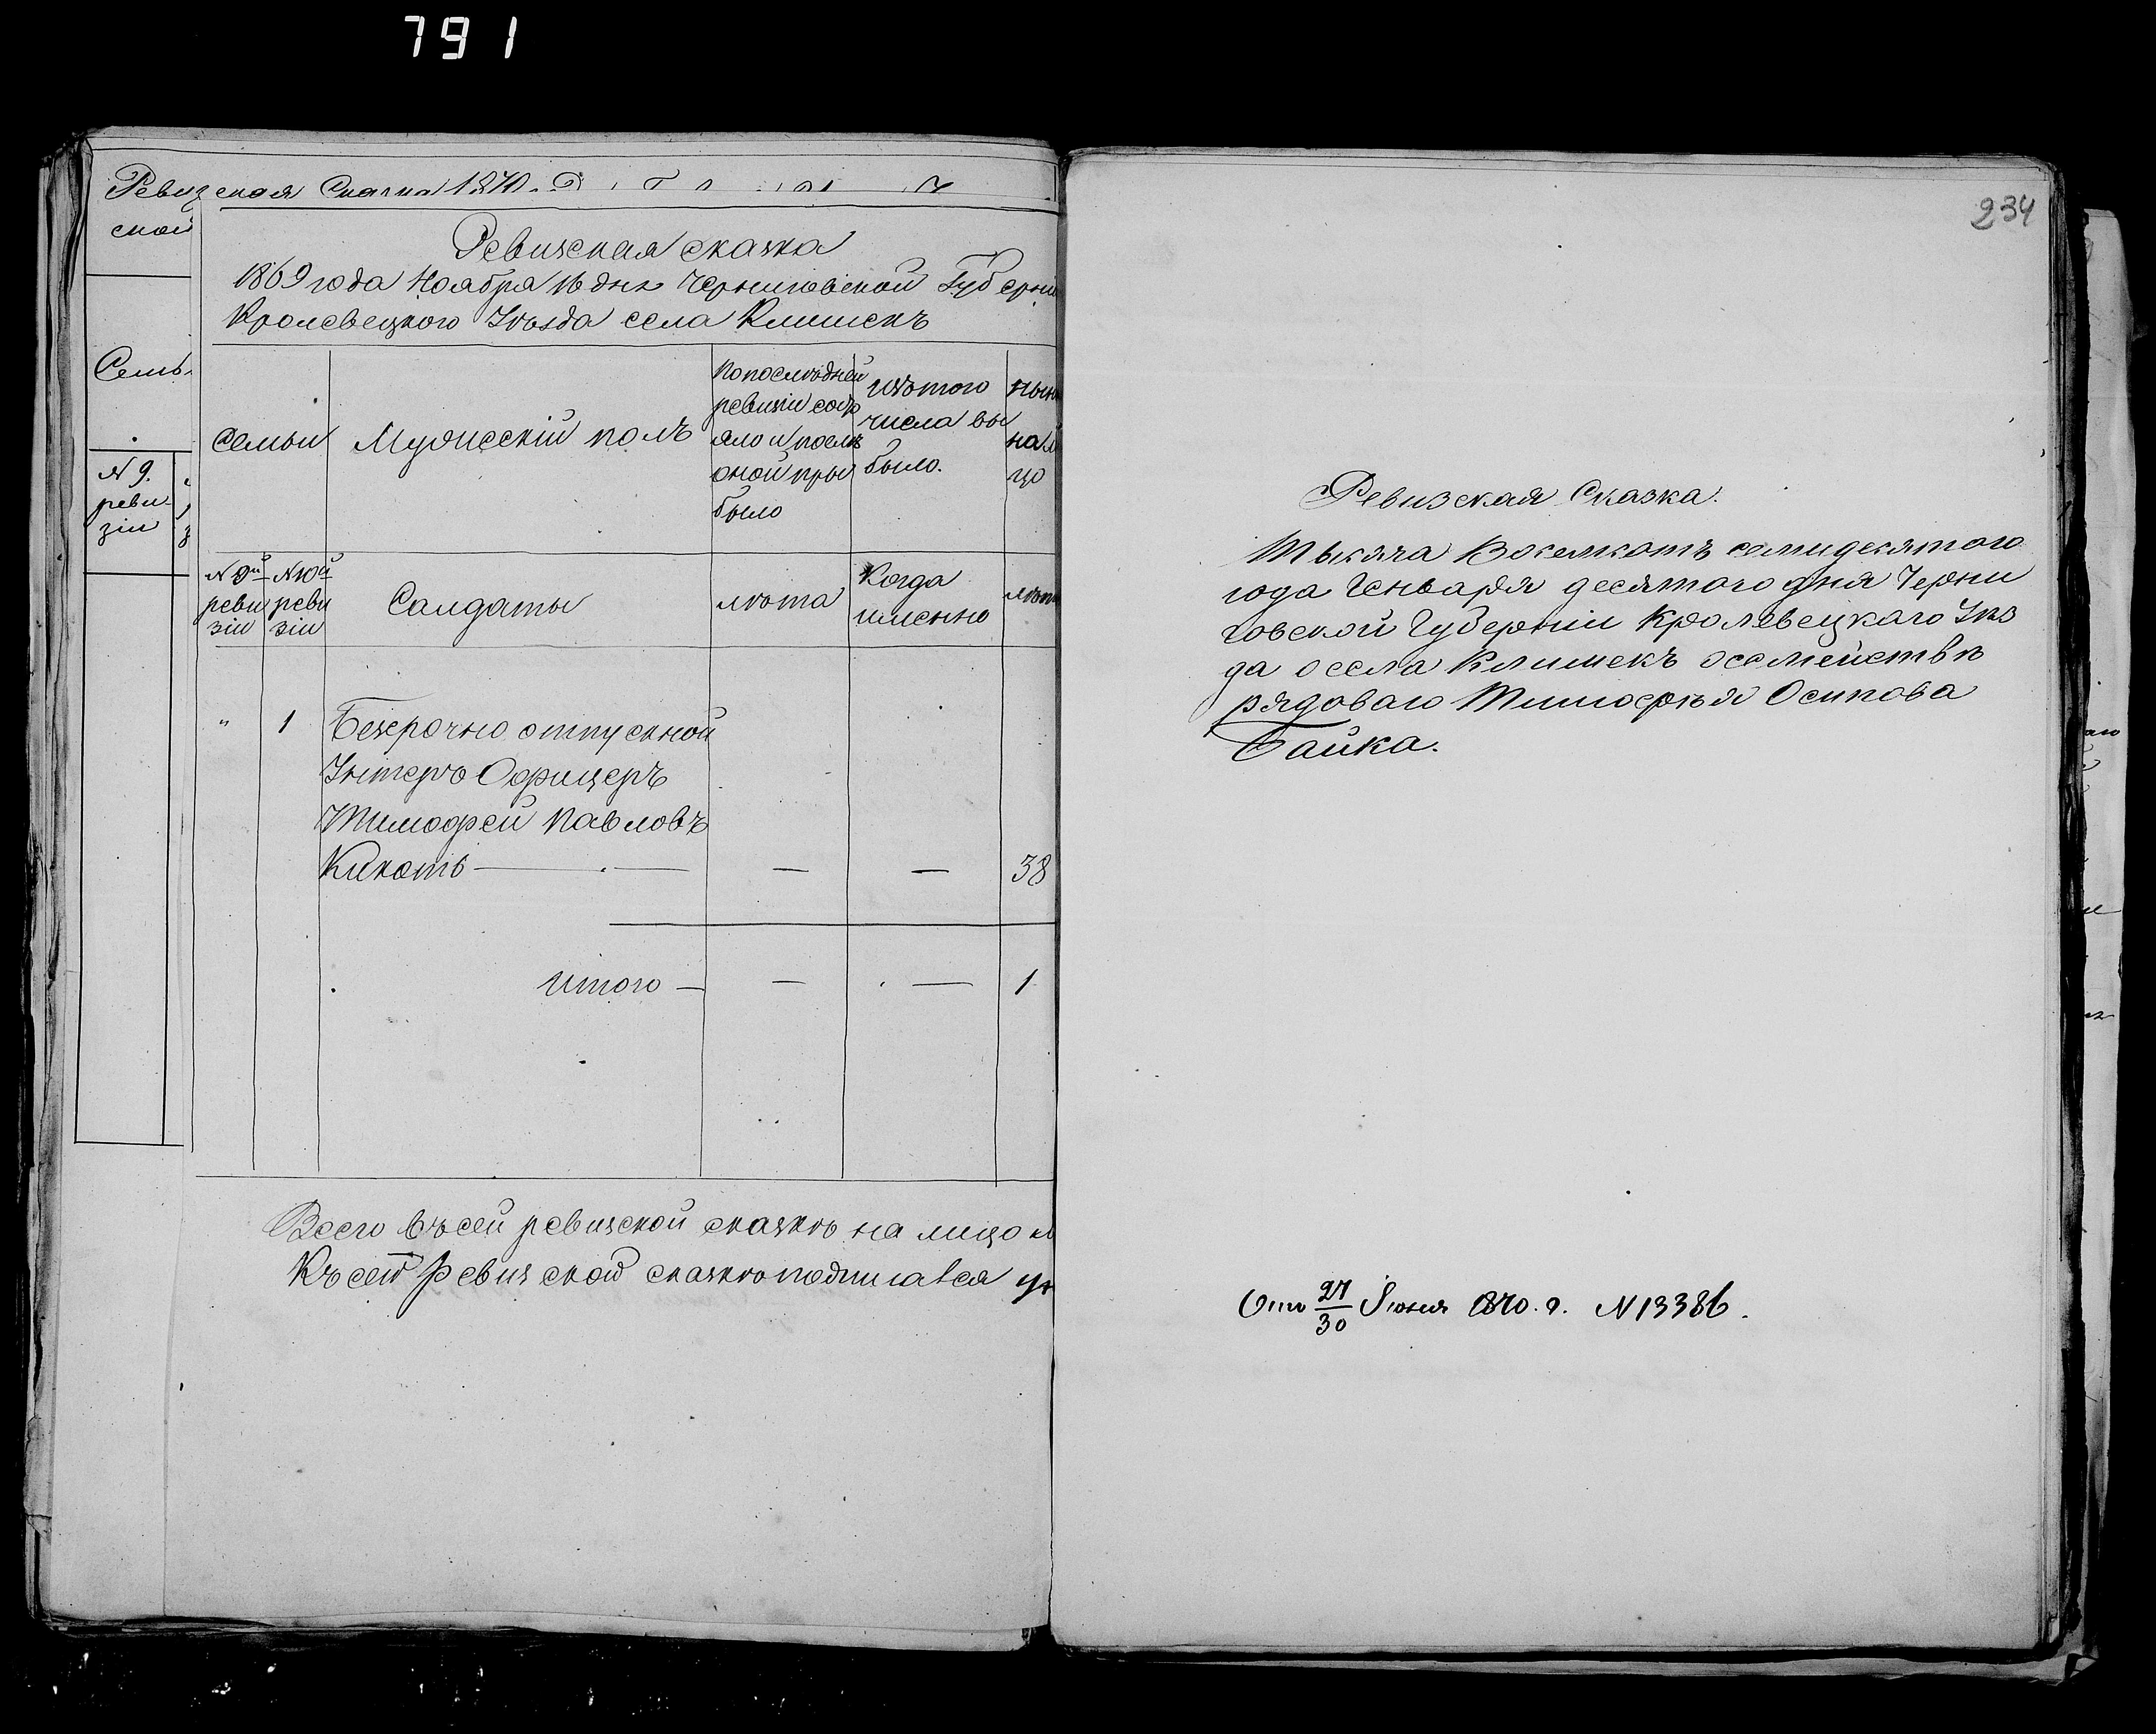 791
Ревизская Сказка 1870.
ской
Семь
N 9.
реви-
зіи
Ревизская сказка
1869 года Ноября 16 дня Черниговской Губерніи
Кролевецкого Уѣзда села Клишекъ
Семьи
Мужескій полъ
По последней
ревизіи состо
яло и послѣ
оной при
было
Изътого
числа вы
было.
Нын
на л
цо
N 9й
реви
зіи
N 10й
реви
зіи
Салдаты
лѣта
Когда
именно
лѣт
" 1 Безсрочно отпускной
Унтеръ Офицеръ
Тимофей Павловъ
Кикоть — — — 38
Итого — — — 1
Всего въсей ревизской сказкѣ на лицо
Къ сей Ревизской сказкѣ подписался
234
Ревизская Сказка.
Тысяча Восемсотъ семидесятого
года Геньваря десятого дня Черни
говской Губерніи Кролевецкаго Уѣз
да о села Клишекъ о семействѣ
рядоваго Тимофѣя Осипова
Байка.
Отъ 27/30 Іюня 1870. г. N 13386.